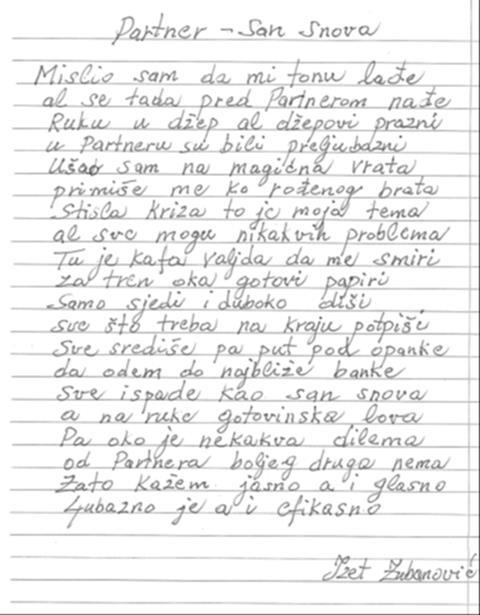 Partner - San Snova
Mislio sam da mi tonu lađe
al se tada pred Partnerom nađe
Ruku u džep al džepovi prazni
u Partneru su bili preljubazni
Ušao sam na magična vrata
primiše me ko rođenog brata
Stisla kriza to je moja tema
al sve mogu nikakvih problema
Tu je kafa valjda da me smiri
za tren oka gotovi papiri
Samo sjedi i duboko diši
sve što treba na kraju potpiši
Sve središe pa put pod opanke
da odem do najbliže banke
Sve ispade kao san snova
a na ruke gotovinska lova
Pa oko je nekakva dilema
od Partnera boljeg druga nema
Zato kažem jasno a i glasno
Ljubazno je a i efikasno
Izet Zubanović